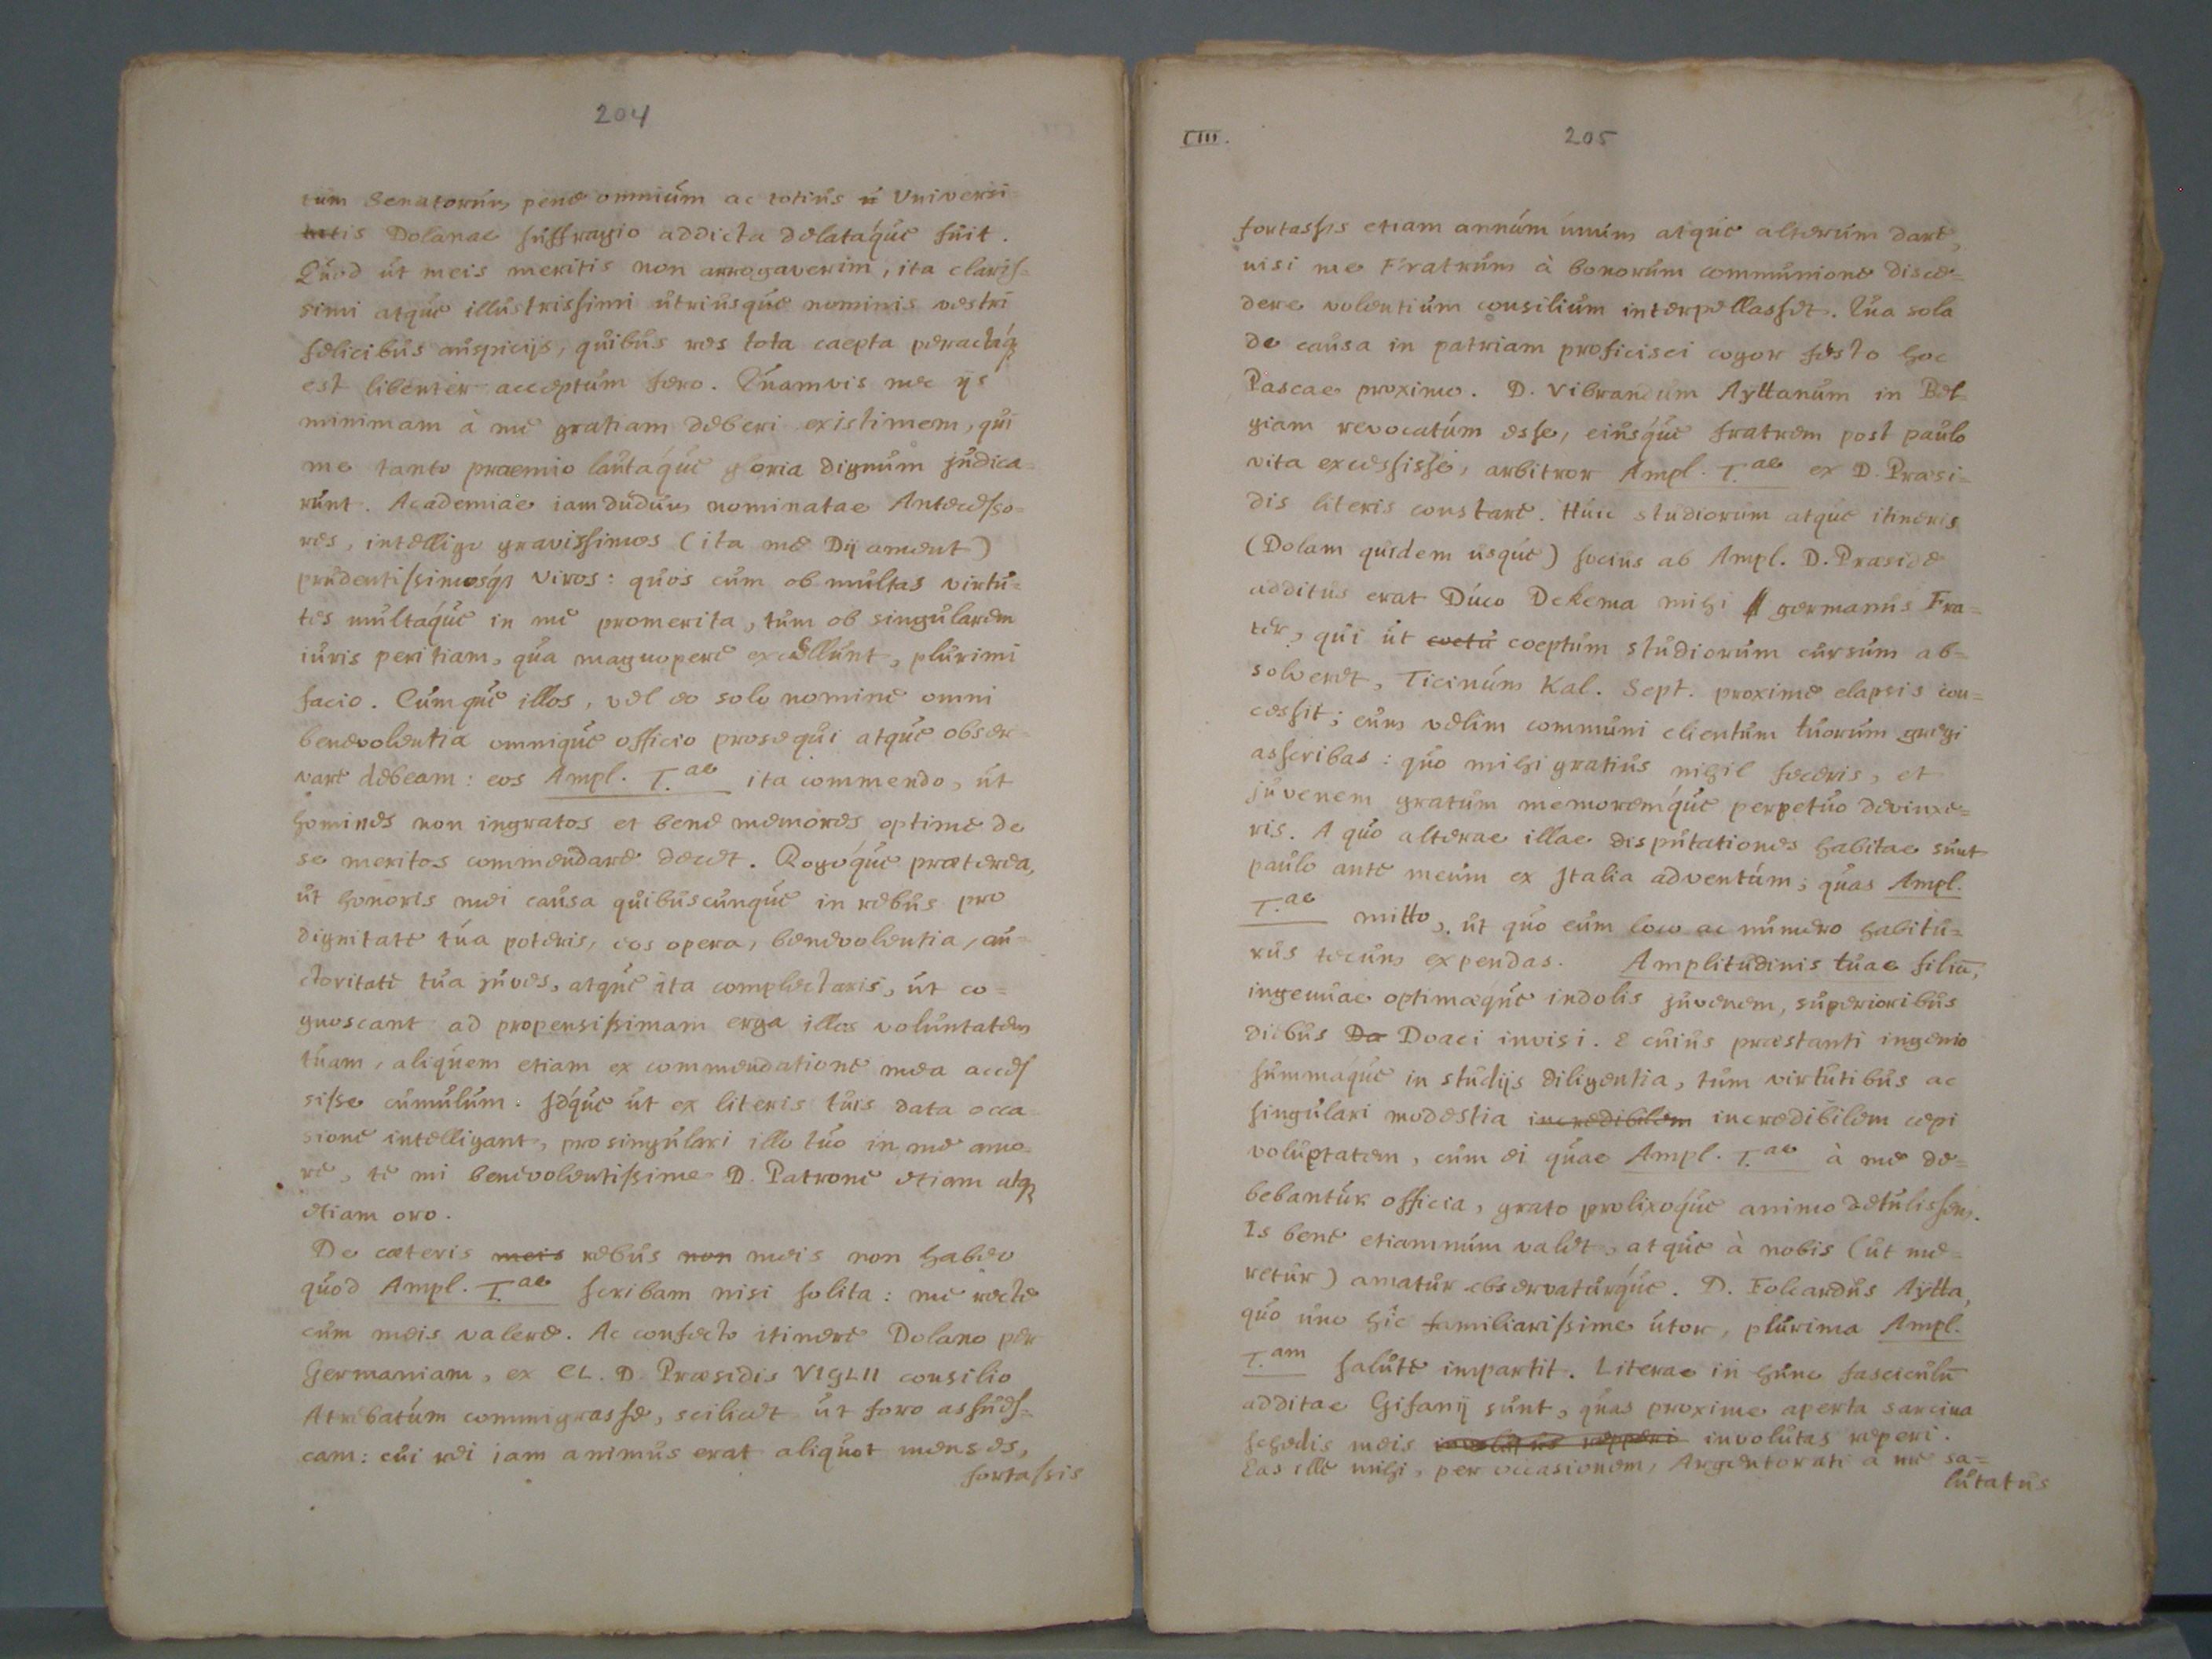 204
tum Senatorum pene omnium ac totius u Universi-
tatis Dolanae suffragio addicta delataque fuit.
Quod ut meis meritis non arrogaverim, ita claris-
simi atque illustrissimi utriusque nominis vestri
felicibus auspicijs, quibus res tota caepta peractaq;
est libenter acceptum fero. Quamvis nec ijs
minimam à me gratiam deberi existimem, qui
me tanto praemio lautaque gloria dignum judica-
runt. Academiae iamdudum nominatae Antecesso-
res, intelligo gravissimos (ita me Dij ament)
prudentissimosq; viros: quos cum ob multas virtu-
tes multaque in me promerita, tum ob singularem
iuris peritiam, qua magnopere excellunt, plurimi
facio. Cumque illos, vel eo solo nomine omni
benevolentia omnique officio prosequi atque obser-
vare debeam: eos Ampl. T.ae ita commendo, ut
homines non ingratos et bene memores optime de
se meritos commendare decet. Rogoque praeterea,
ut honoris mei causa quibuscunque in rebus pro
dignitate tua poteris, eos opera, benevolentia, au-
ctoritate tua juves, atque ita complectaris, ut co-
gnoscant ad propensissimam erga illos voluntatem
tuam, aliquem etiam ex commendatione mea acces
sisse cumulum. Idque ut ex literis tuis data occa
sione intelligant, pro singulari illo tuo in me amo-
re, te mi benevolentissime D. Patrone etiam atq;
etiam oro.
De caeteris meis rebus non meis non habeo
quod Ampl. T.ae scribam nisi solita: me recte
cum meis valere. Ac confecto itinere Dolano per
Germaniam, ex CL. D. Praesidis VIGLII consilio
Atrebatum commigrasse, scilicet ut foro assues-
cam: cui rei iam animus erat aliquot menses,
fortassis
CIII.
205
fortassis etiam annum unum atque alterum dare,
nisi me Fratrum à bonorum communione disce-
dere volentium consilium interpellasset. Qua sola
de causa in patriam proficisci cogor festo hoc
Pascae proximo. D. Vibrandum Aÿttanum in Bel-
giam revocatum esse, eiusque fratrem post paulo
vita excessisse, arbitror Ampl. T.ae ex D. Praesi-
dis literis constare. Huic studiorum atque itineris
(Dolam quidem usque) socius ab Ampl. D. Praeside
additus erat Duco Dekema mihi germanus Fra-
ter, qui ut coeta coeptum studiorum cursum ab-
solveret, Ticinum Kal. Sept. proxime elapsis con-
cessit; eum velim communi clientum tuorum gregi
asscribas: quo mihi gratius nihil feceris, et
juvenem gratum memoremque perpetuo devinxe-
ris. A quo alterae illae disputationes habitae sunt
paulo ante meum ex Italia adventum; quas Ampl.
T.ae mitto, ut quo eum loco ac numero habitu-
rus tecum expendas. Amplitudinis tuae filiū,
ingenuae optimaeque indolis juvenem, superioribus
diebus Da Doaci invisi. E cuius praestanti ingenio
summaque in studijs diligentia, tum virtutibus ac
singulari modestia incredibilem incredibilem cepi
voluptatem, cum ei quae Ampl. T.ae à me de-
bebantur officia, grato prolixoque animo detulissem.
Is bene etiamnum valet, atque à nobis (ut me-
retur) amatur observaturque. D. Folcardus Aÿtta,
quo uno hîc familiarissime utor, plurima Ampl.
T.am salute impartit. Literae in hunc fasciculū
additae Gifanij sunt, quas proxime aperta sarcina
schedis meis involutas repperi involutas reperi.
Eas ille mihi, per occasionem, Argentorati à me sa-
lutatus